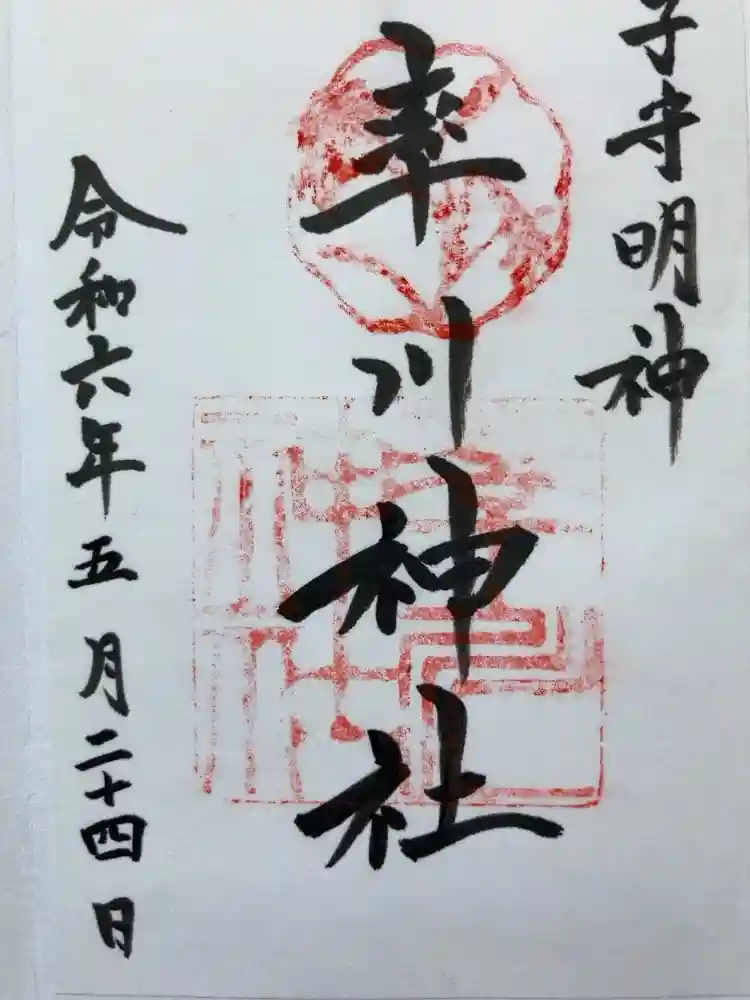 子守明神
率川神社
令和六年五月二十四日